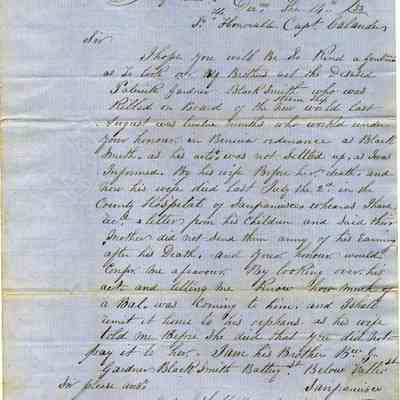 the 14th
To Honorable Capt Calander
Sir
I hope you will Be So Kind a fortune
as To look on my Brothers act the Deceased
Patrick Gardner Black Smith who was
Steem Ship
Killed on Board of the New world Last
August was twelve months who worked under
your honour in Benicia ordenance as Black
Smith, as his acto was not Settled up, as I was
Informed. By his wife Before her death. and
now his wife died Last July the 2d. in the
County Hospitale of Sanfrancisco whearas I have
recd a letter from his Children and Said thir
Mother did not Send them anny of his Earnings
after his Death. and your honour would
Confir me a favour. By looking over his
act and telling me Know how much of
a Bal. was Coming to him. and I shall
remit it home to his orphans as his wife
told me Before She died that you did not
pay it to her. I am his Brother Wm G.
Gardner Black Smith Battery St Below Valler St
Sir please ansr Sanfrancisco